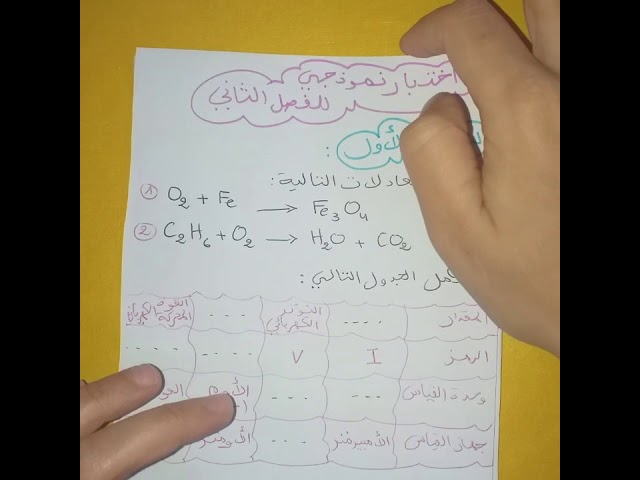 اختبار نموذجي
للفصل الثاني
الأول :
التالية :
① O₂ + Fe → Fe₃O₄
② C₂H₆ + O₂ → H₂O + CO₂
كمل الجدول التالي :
المقدار .... التوتر الكهربائي ... القوة المحركة الكهربائية
الرمز I V .... ....
وحدة القياس ... ... الأوم
جهاز القياس الأمبيرمتر ... الأومتر